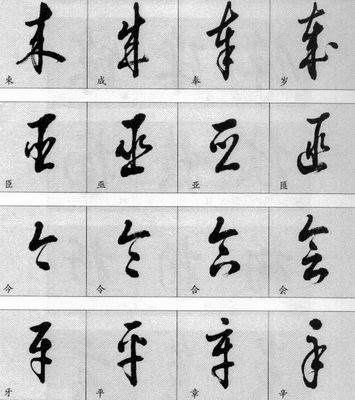 束 成 奉 岁
臣 巫 亚 匪
今 令 合 会
牙 平 章 辛